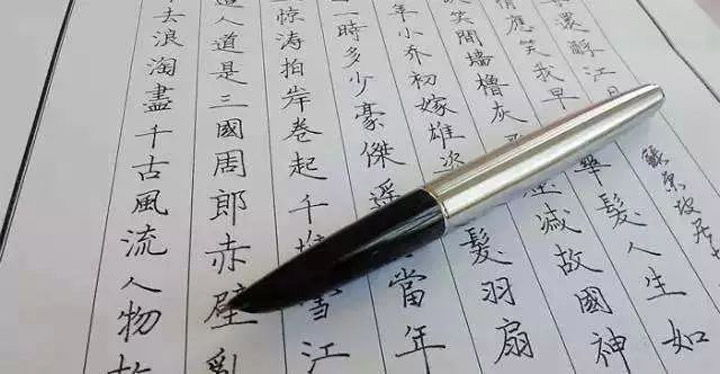 去浪淘盡千古風流人物
人道是三國周郎赤壁亂
惊涛拍岸卷起千雪江
一時多少豪傑遥當年
年小乔初嫁雄髮羽扇
笑間墻櫓灰減故國神
情應笑我早華髮人生如
還酹江月